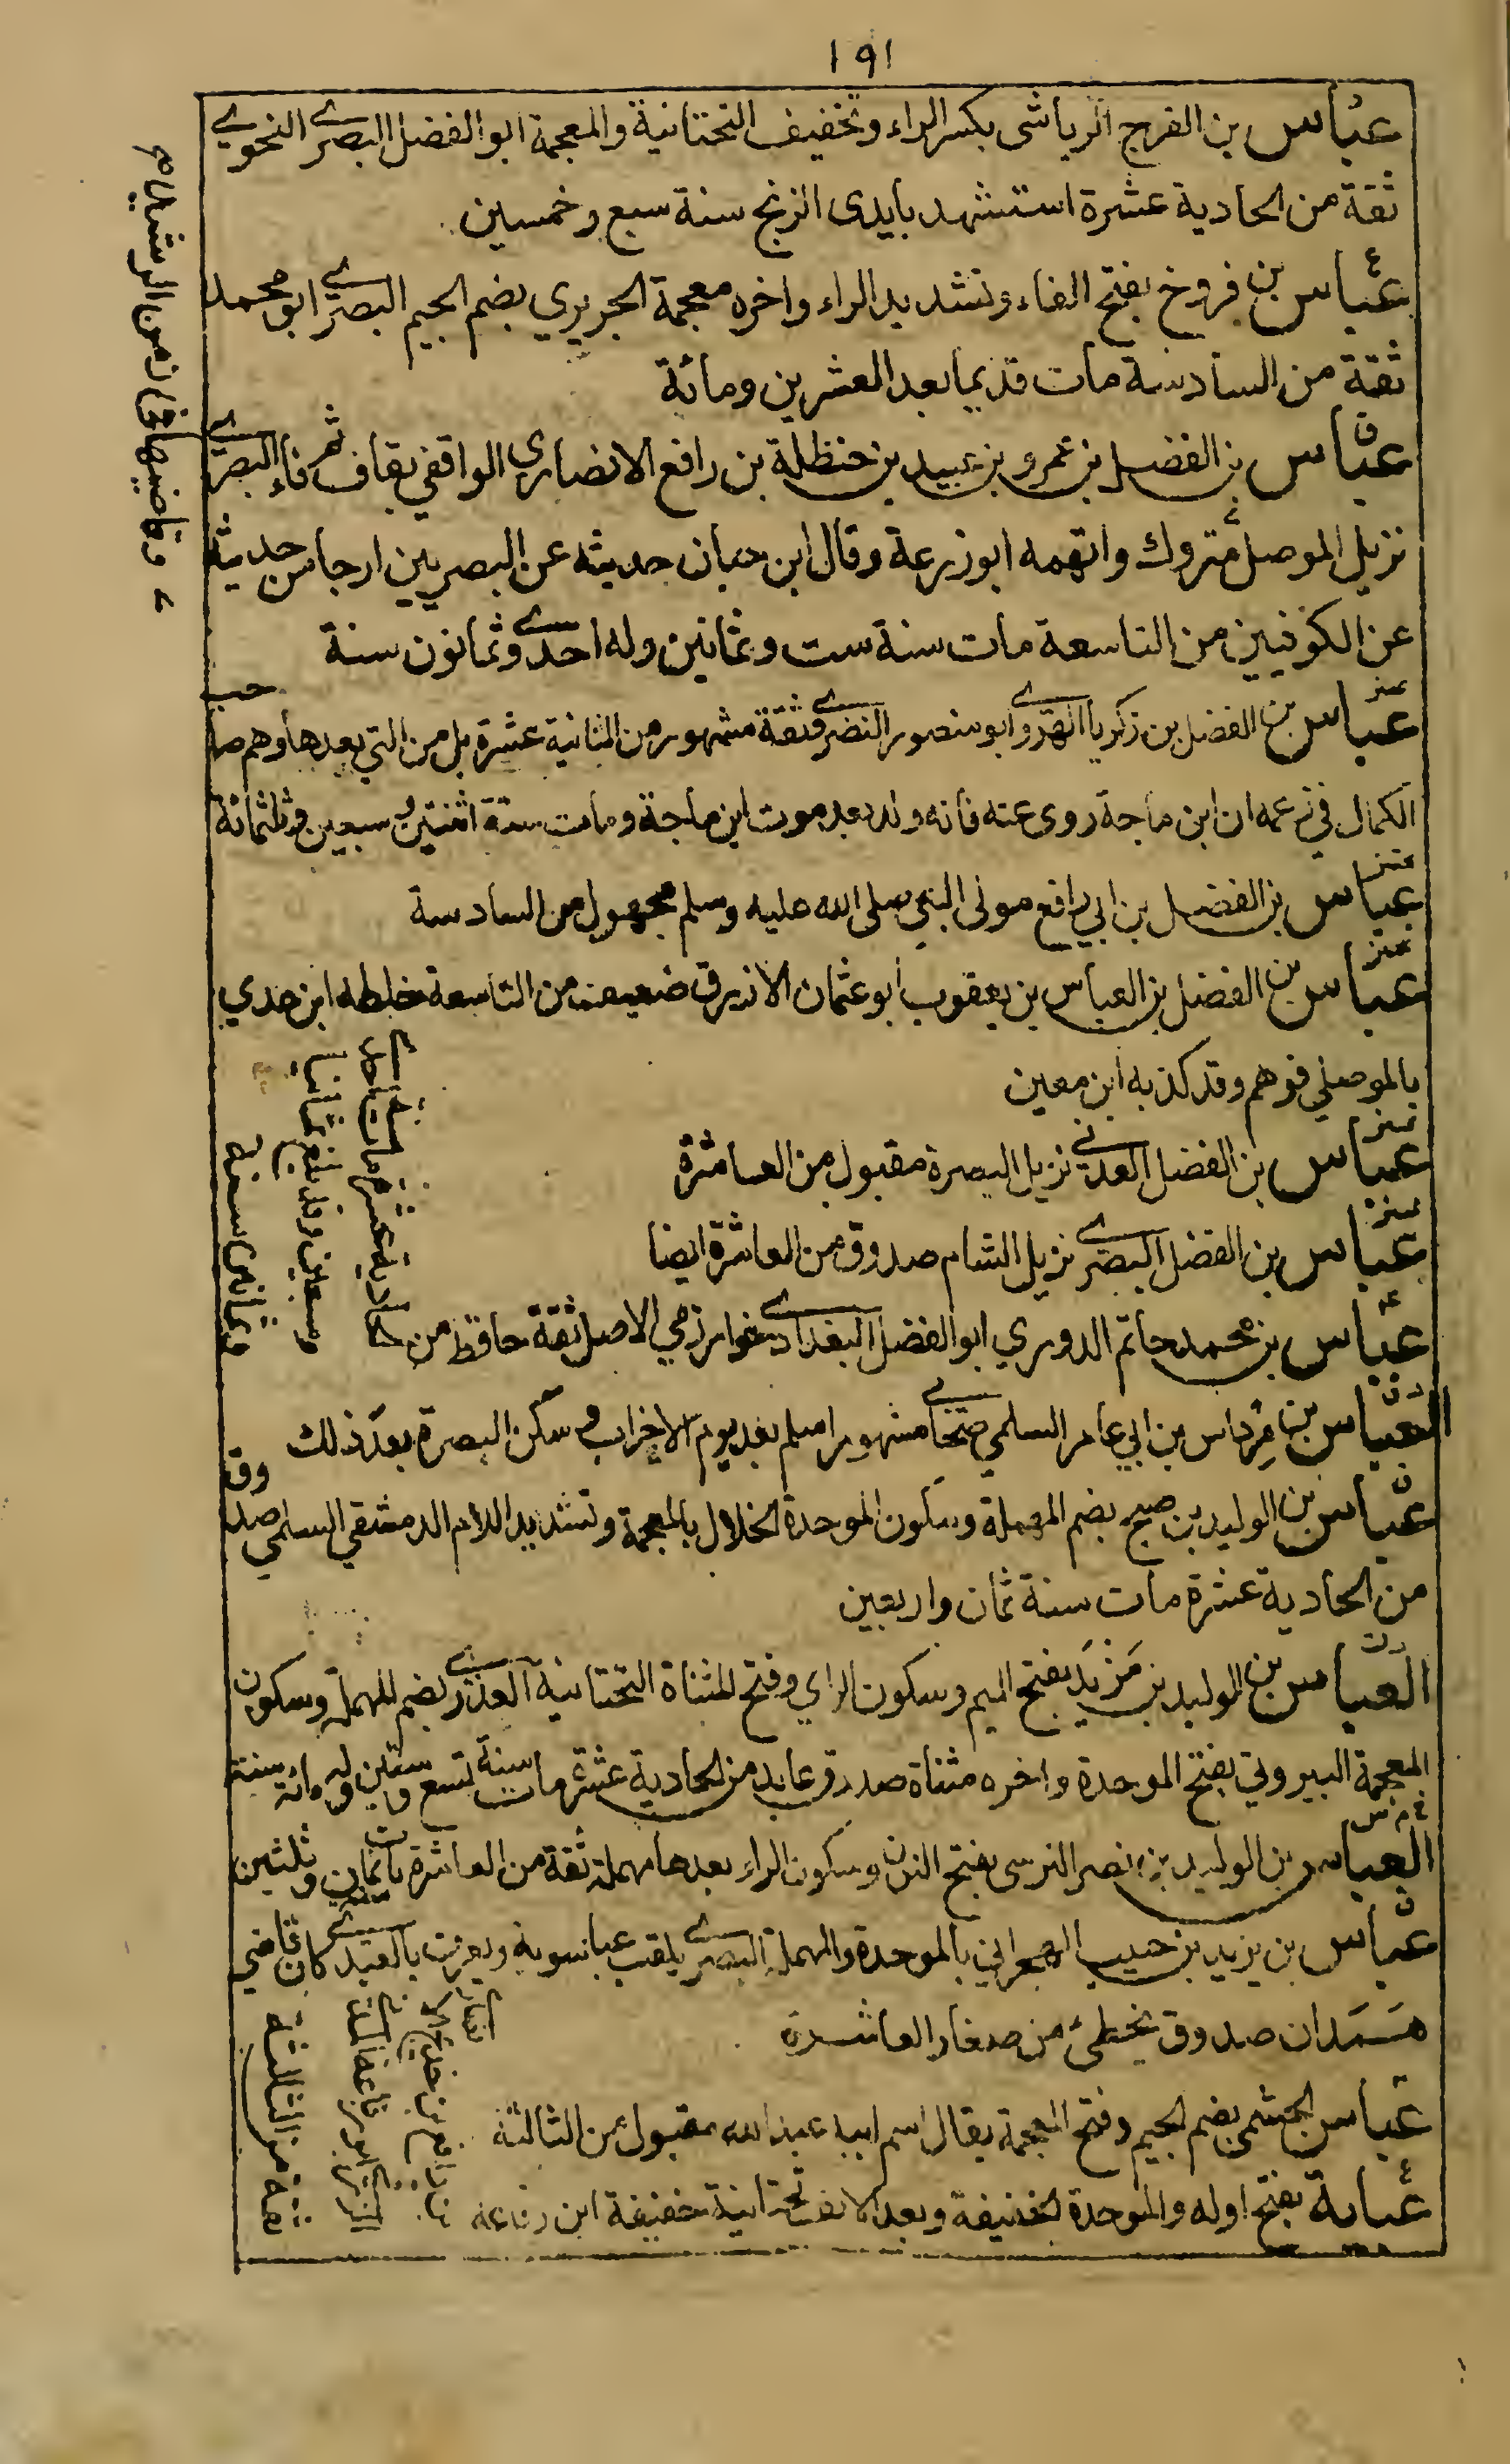 ١٩١
عباس بن الفرج الرياشى بكسر الراء وتخفيف التحتانية والمعجمة ابو الفضل البصرے النحوے
ثقة من الحادية عشرة استشهد بايدى الزنج سنة سبع وخمسين
ع
عباس بن فروخ بفتح الفاء وتشديد الراء واخره معجمة الجريري بضم الجيم البصرے ابو محمد
ثقة من السادسة مات قديما بعد العشرين ومائة
ق
عباس بن الفضل بن عمرو بن عبيد بن حنظلة بن رافع الانصاري الواقفي بقاف ثم فاء البصرے
نزيل الموصل متروك واتهمه ابو زرعة وقال ابن حبان حديثه عن البصريين ارجا من حديثه
عن الكوفيين من التاسعة مات سنة ست وثمانين وله احدے وثمانون سنة
تميز
عباس بن الفضل بن زكريا الهروے ابو منصور النضروے ثقة مشهور من الثانية عشرة بل من التي بعدها وهم صاحب
الكمال في زعمه ان ابن ماجة روى عنه فانه ولد بعد موت ابن ماجة ومات سنة اثنتين وسبعين وثلثمائة
تميز
عباس بن الفضل بن ابي رافع مولى النبي صلى الله عليه وسلم مجهول من السادسة
تميز
عباس بن الفضل بن العباس بن يعقوب ابو عثمان الازرق ضعيف من التاسعة خلطه ابن عدي
بالموصلي فوهم وقد كذبه ابن معين
تميز
عباس بن الفضل العدنے نزيل البصرة مقبول من العاشرة
تميز
عباس بن الفضل البصرے نزيل الشام صدوق من العاشرة ايضا
عباس بن محمد حاتم الدوري ابو الفضل البغدادے خوارزمي الاصل ثقة حافظ من
الحادية عشرة مات سنة احدى
وسبعين وقد بلغ ثمانيا
وثمانين سنة
دق
العباس بن مرداس بن ابي عامر السلمي صحابے مشهور اسلم بعد يوم الاحزاب وسكن البصرة بعد ذلك
ق
عباس بن الوليد بن صبح بضم المهملة وسكون الموحدة الخلال بالمعجمة وتشديد اللام الدمشقي السلمي صدوق
من الحادية عشرة مات سنة ثمان واربعين
العباس بن الوليد بن مَزْيَد بفتح الميم وسكون الزاي وفتح المثناة التحتانية العذرے بضم المهملة وسكون
المعجمة البيروتي بفتح الموحدة واخره مثناة صدوق عابد من الحادية عشرة مات سنة تسع وستين وله مائة سنة
خ م س
العباس بن الوليد بن نصر النرسى بفتح النون وسكون الراء بعدها مهملة ثقة من العاشرة مات سنة ثمان وثلثين
ق
عباس بن يزيد بن حبيب البحراني بالموحدة والمهملة البصرے يلقب عباسويه ويعرف بالعبدے كان قاضي
همدان صدوق يخطئ من صغار العاشرة
عباس الجشمي بضم الجيم وفتح المعجمة يقال اسم ابيه عبد الله مقبول من الثالثة
ع
عباية بفتح اوله والموحدة الخفيفة وبعد الالف تحتانية خفيفة ابن رفاعة
بن رافع بن خديج الانصارے
ثقة من الثالثة